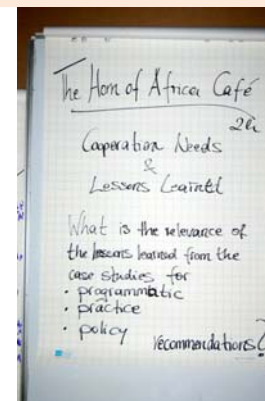 The Horn of Africa Café
2h
Cooperation Needs
&
Lessons Learnt
What is the relevance of
the lessons learned from the
case studies for
• programmatic
• practice
• policy
recommendations?